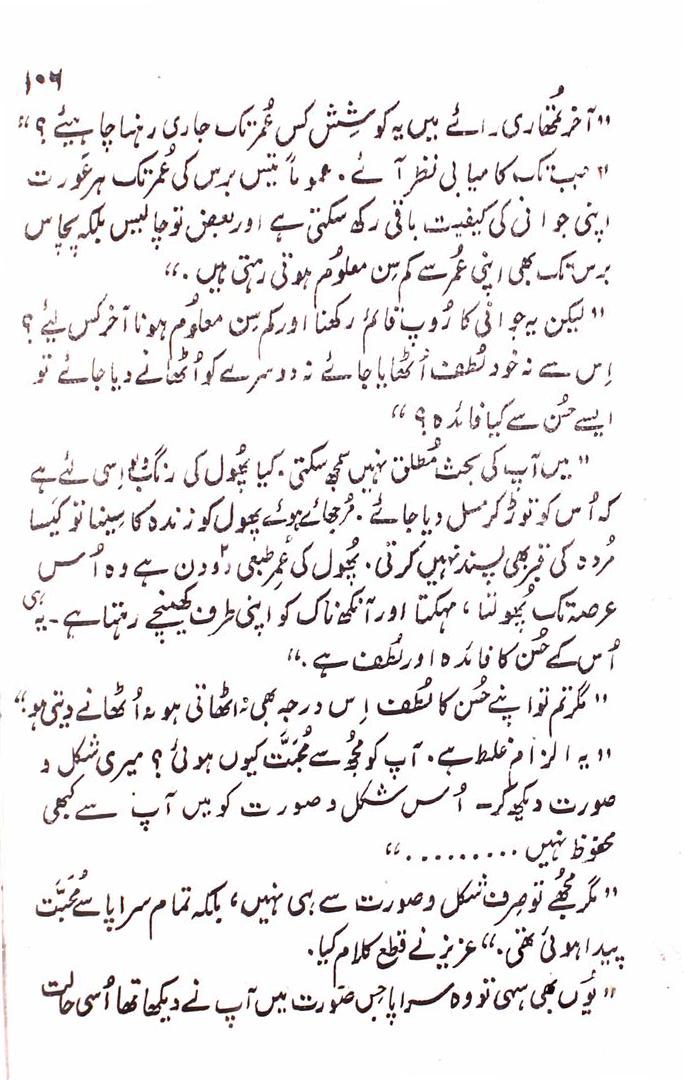 ۱۰۶
"آخر تمھاری رائے میں یہ کوشِش کس عُمر تک جاری رہنا چاہیئے ؟"
"جب تک کامیابی نظر آئے ۔ عموماً تیس برس کی عُمر تک ہر عَورت
اپنی جوانی کی کیفیت باقی رکھ سکتی ہے اور بعض تو چالیس بلکہ پچاس
برس تک بھی اپنی عُمر سے کم سِن معلوم ہوتی رہتی ہیں ۔"
"لیکن یہ جوانی کا رُوپ قائم رکھنا اور کم سِن معلوُم ہونا آخر کس لیئے ؟
اِس سے نہ خود لُطف اُٹھایا جائے نہ دوسرے کو اُٹھانے دیا جائے تو
ایسے حُسن سے کیا فائدہ ؟"
"میں آپ کی بحث مُطلق نہیں سمجھ سکتی ۔ کیا پھُول کی رنگ و بو اِسی لئے ہے
کہ اُس کو توڑ کر مسل دیا جائے ۔ مُرجھائے ہوئے پھول کو زندہ کا سِینا تو کیسا
مُردہ کی قبر بھی پسند نہیں کرتی ۔ پھُول کی عُمرِ طبعی دو دن ہے وہ اُس
عرصہ تک پھُولتا ، مہکتا اور آنکھ ناک کو اپنی طرف کھینچے رہتا ہے ۔ یہی
اُس کے حُسن کا فائدہ اور لُطف ہے ۔"
"مگر تم تو اپنے حُسن کا لُطف اِس درجہ بھی نہ اٹھاتی ہو نہ اُٹھانے دیتی ہو"
"یہ الزام غلط ہے ۔ آپ کو مجھ سے مُحبَّت کیوں ہوئی ؟ میری شکل و
صورت دیکھ کر ۔ اُس شکل و صورت کو میں آپ سے کبھی
محفوظ نہیں ........."
"مگر مُجھے تو صِرف شکل و صورت سے ہی نہیں ، بلکہ تمام سراپا سے مُحبَّت
پیدا ہوئی تھی ۔" عزیز نے قطع کلام کیا ۔
"یُوں بھی سہی تو وہ سراپا جِس صُورت میں آپ نے دیکھا تھا اُسی حالت